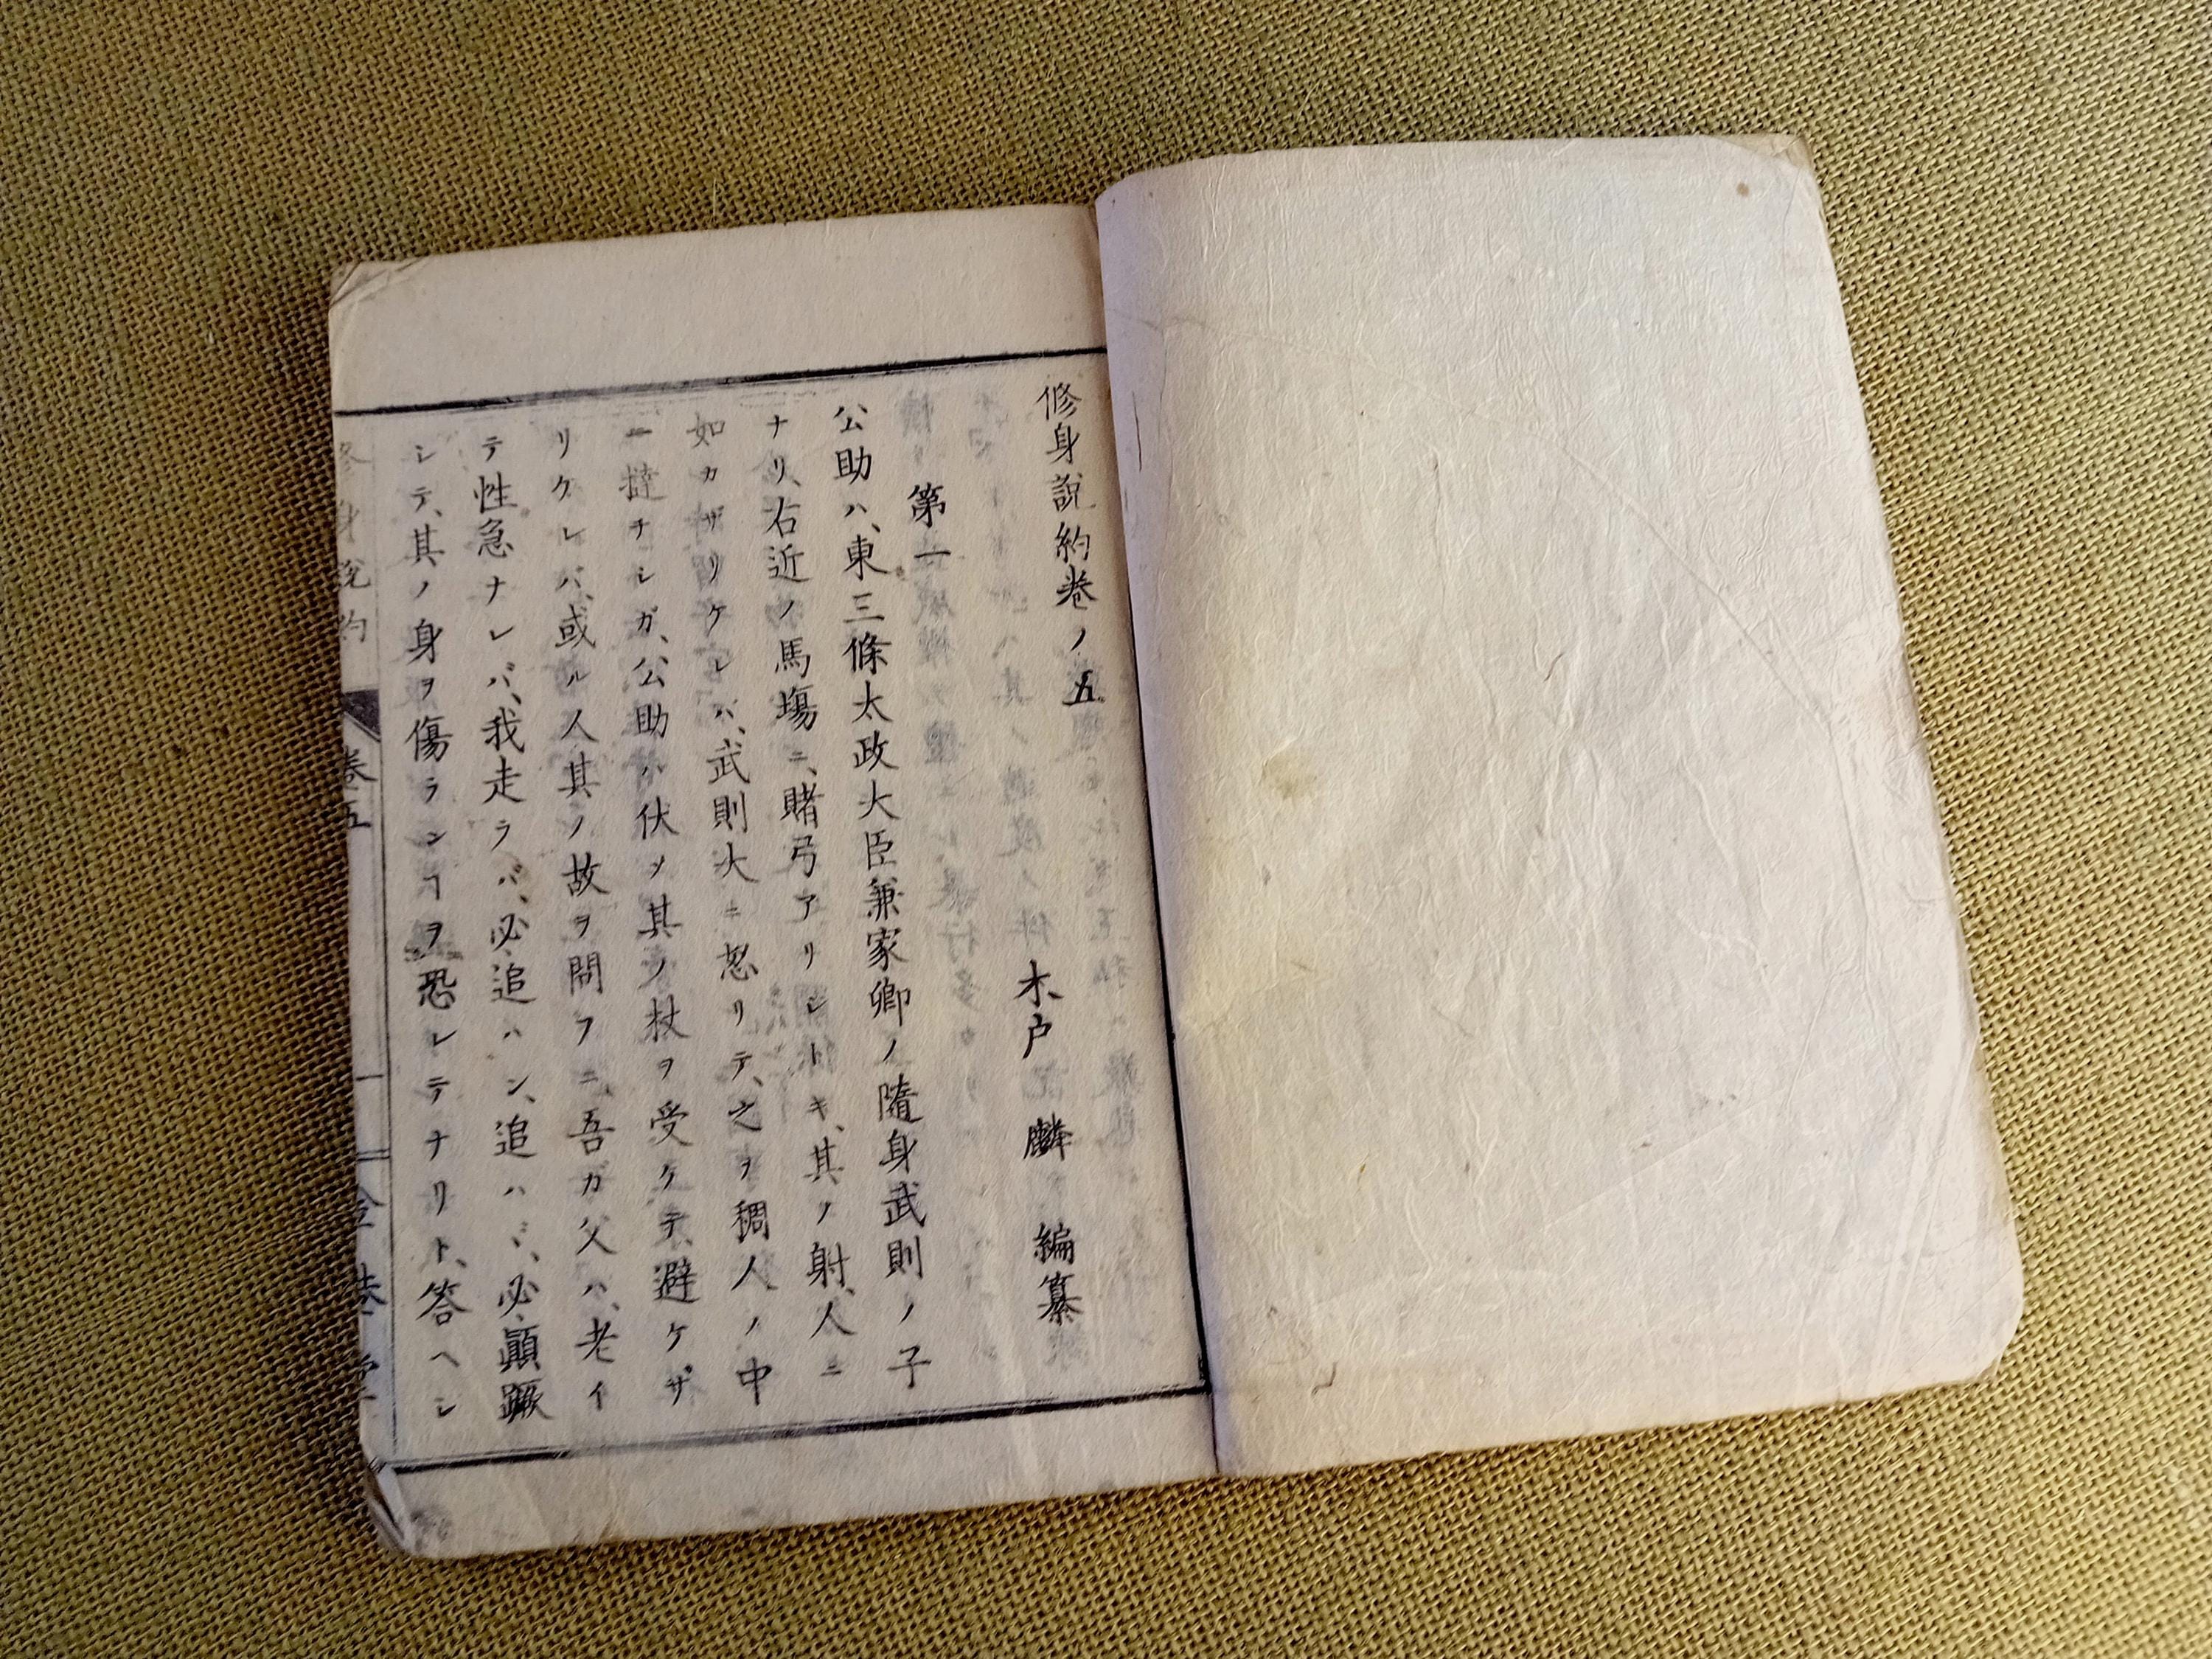 修身說約卷ノ五
木戸麟編纂
第一
公助ハ、東三條太政大臣兼家卿ノ隨身武則ノ子
ナリ、右近ノ馬塲ニ、賭弓アリシトキ、其ノ射、人ニ
如カザリケレバ、武則大ニ怒リテ、之ヲ稠人ノ中
ニ撻チシガ、公助ハ伏シ其ノ杖ヲ受ケテ、避ケザ
リケレバ、或ル人其ノ故ヲ問フニ、吾ガ父ハ、老イ
テ性急ナレバ、我走ラバ、必追ハン、追ハヾ、必顚蹶
シテ、其ノ身ヲ傷ランヿヲ恐レテナリト、答ヘシ
修身說約
卷五
金港堂